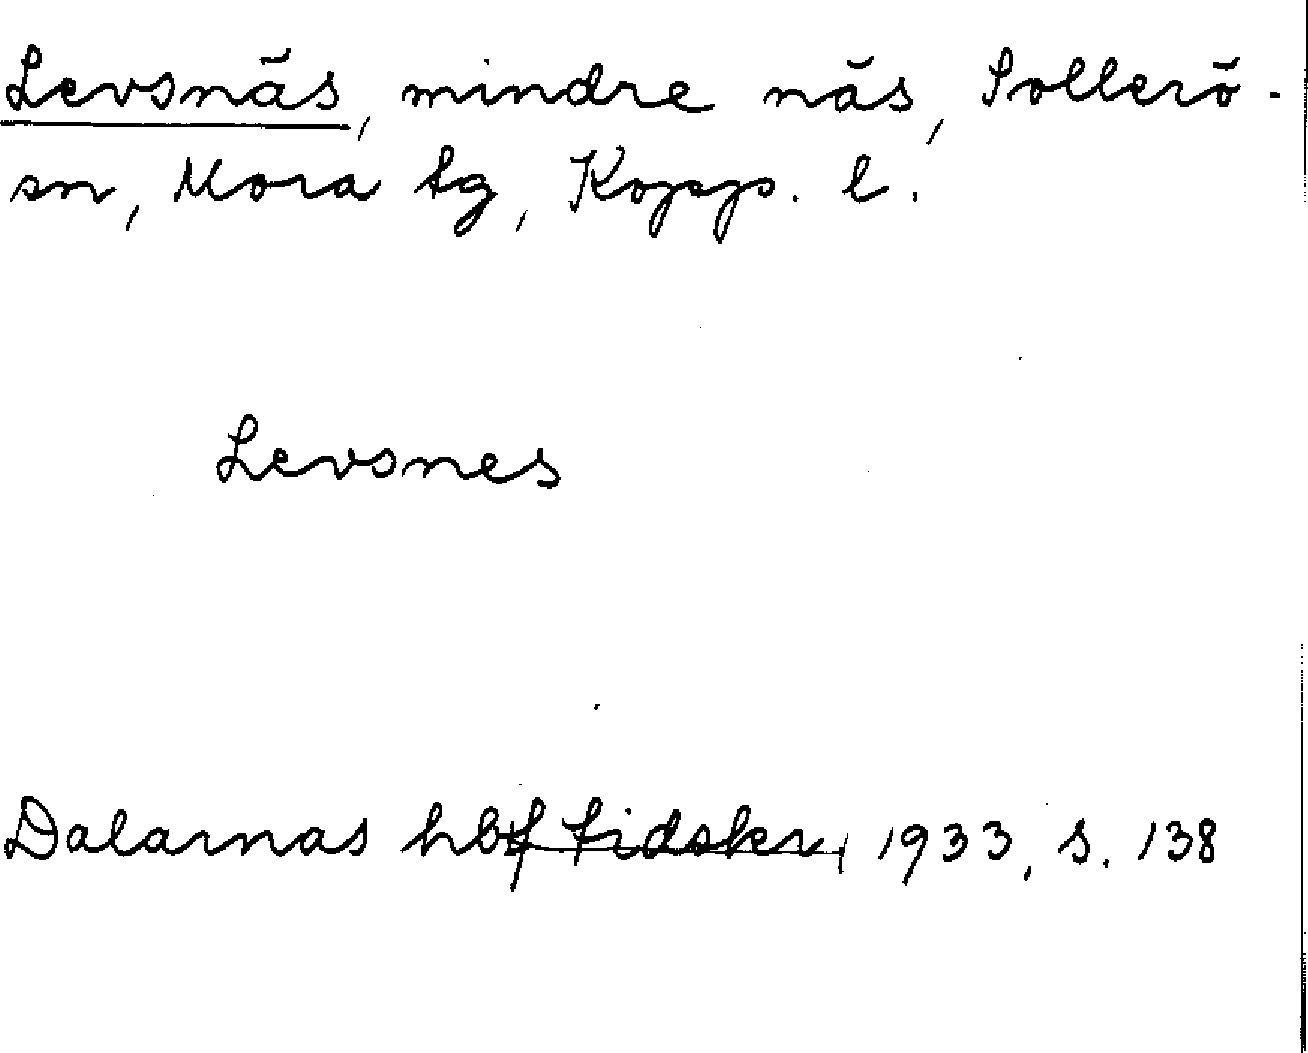 Levsnäs, mindre näs, Sollerö-
sn, Mora tg, Kopp. l.
Levsnes
Dalarnas hbf tidskr, 1933, s. 138